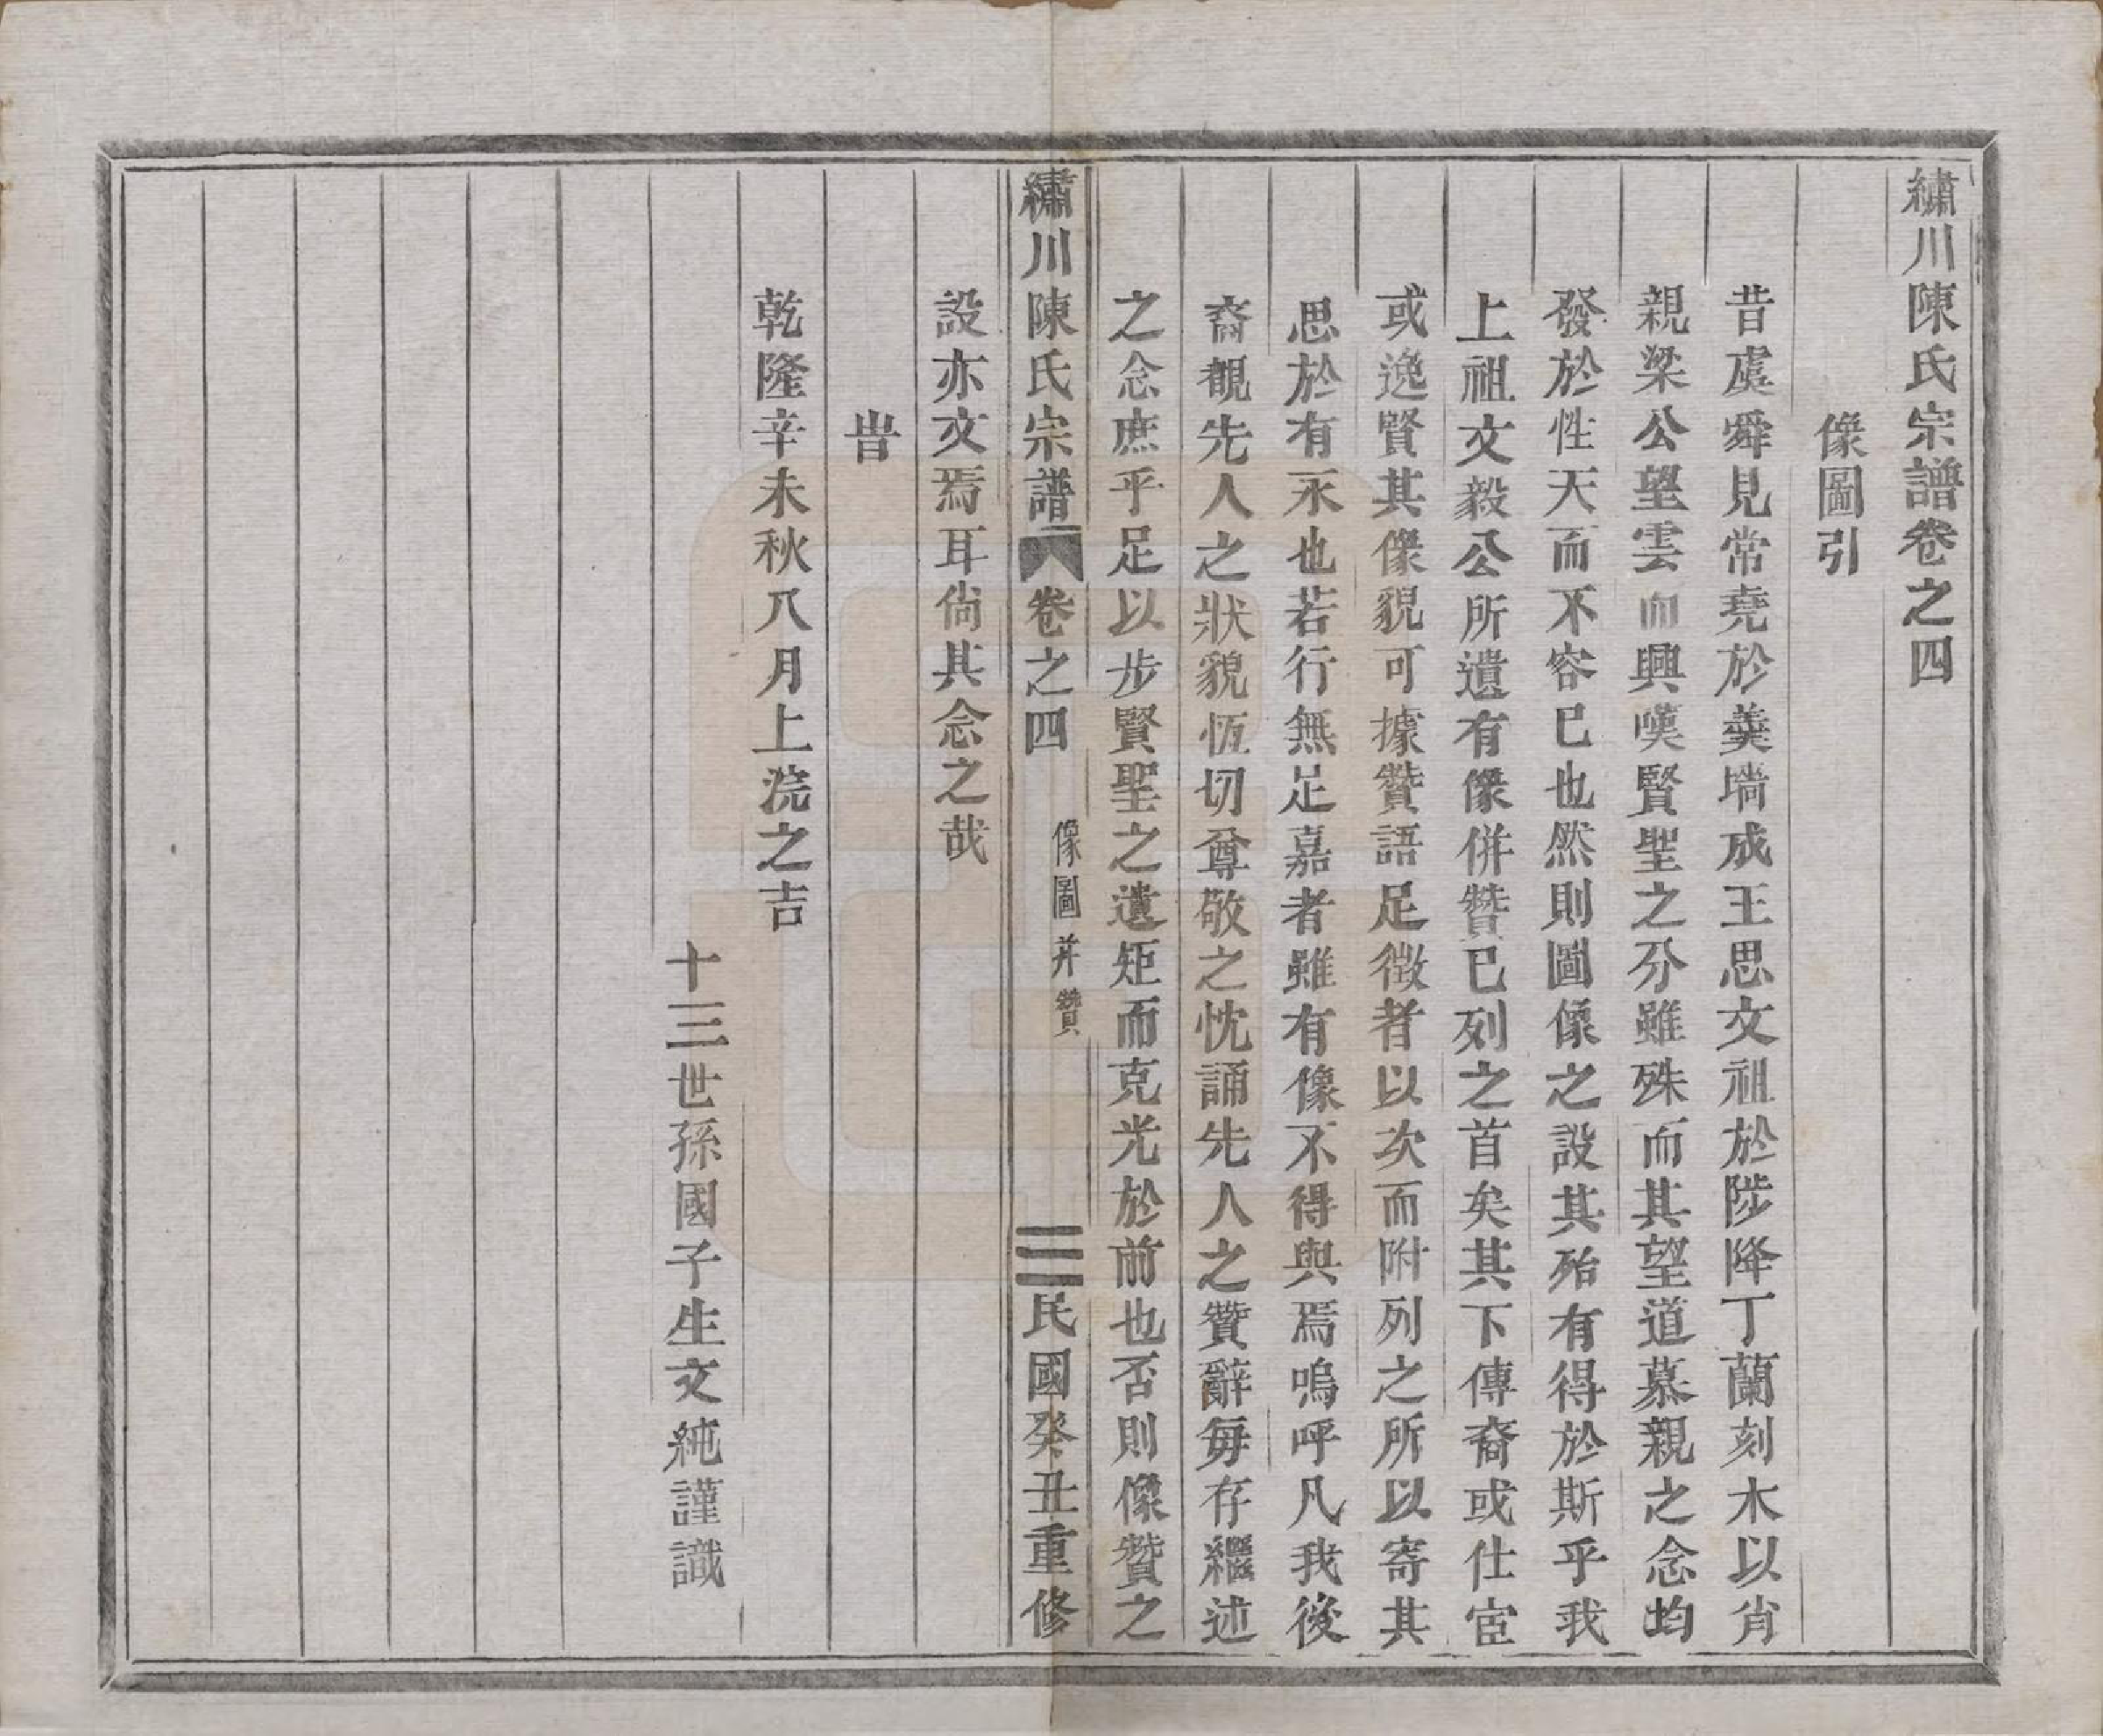 繡川陳氏宗譜卷之四
像圖引
昔虞舜見常堯於羹墻成王思文祖於陟降丁蘭刻木以肖
親梁公望雲而興嘆賢聖之分雖殊而其望道慕親之念均
發於性天而不容已也然則圖像之設其殆有得於斯乎我
上祖文毅公所遺有像併贊已列之首矣其下傳裔或仕宦
或逸賢其像貌可據贊語足徵者以次而附列之所以寄其
思於有永也若行無足嘉者雖有像不得與焉嗚呼凡我後
裔覩先人之狀貌恆切尊敬之忱誦先人之贊辭每存繼述
之念庶乎足以步賢聖之遺矩而克光於前也否則像贊之
繡川陳氏宗譜 卷之四 像圖并贊 三 民國癸丑重修
設亦文焉耳倘其念之哉
旹
乾隆辛未秋八月上浣之吉
十三世孫國子生文純謹識